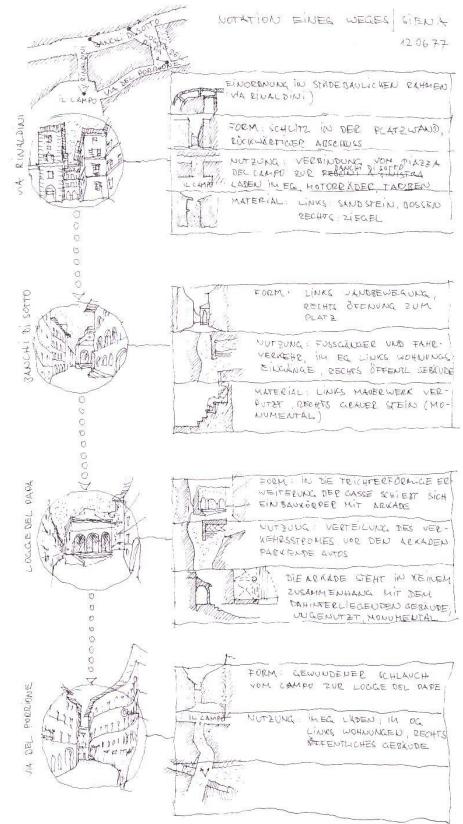 NOTATION EINES WEGES / SIENA
12.06.77
BANCHI DI SOTTO
RINALDINI
VIA DEL PORRIONE
IL CAMPO
VIA RINALDINI
EINORDNUNG IN STÄDEBAULICHEN RAHMEN
VIA RINALDINI)
FORM: SCHLITZ IN DER PLATZWAND,
RÜCKWÄRTIGER ABSCHUSS
NUTZUNG: VERBINDUNG VOM PIAZZA
BANCHI DI SOTTO
DEL CAMPO ZUR
IL CAMPO
LÄDEN IM EG, MOTORRÄDER, TAUBEN
MATERIAL: LINKS: SANDSTEIN, BOSSEN
RECHTS: ZIEGEL
BANCHI DI SOTTO
FORM: LINKS WANDBEWEGUNG,
RECHTS ÖFFNUNG ZUM
PLATZ
NUTZUNG: FUSSGÄNGER UND FAHR-
VERKEHR, IM EG LINKS WOHNUNGS
EINGÄNGE, RECHTS ÖFFENTL GEBÄUDE
MATERIAL: LINKS MAUERWERK VER-
PUTZT, RECHTS GRAUER STEIN (MO-
NUMENTAL)
LOGGE DEL PAPA
FORM: IN DIE TRICHTERFÖRMIGE ER
WEITERUNG DER GASSE SCHIEBT SICH
EIN BAUKÖRPER MIT ARKADE
NUTZUNG: VERTEILUNG DES VER-
KEHRSSTROMES VOR DEN ARKADEN
PARKENDE AUTOS
DIE ARKADE STEHT IN KEINEM
ZUSAMMENHANG MIT DEM
DAHINTERLIEGENDEN GEBÄUDE,
UNGENUTZT, MONUMENTAL
VIA DEL PORRIONE
FORM: GEWUNDENER SCHLAUCH
VOM CAMPO ZUR LOGGE DEL PAPE
IL CAMPO
NUTZUNG: IM EG LÄDEN, IM OG
LINKS WOHNUNGEN, RECHTS
ÖFFENTLICHES GEBÄUDE